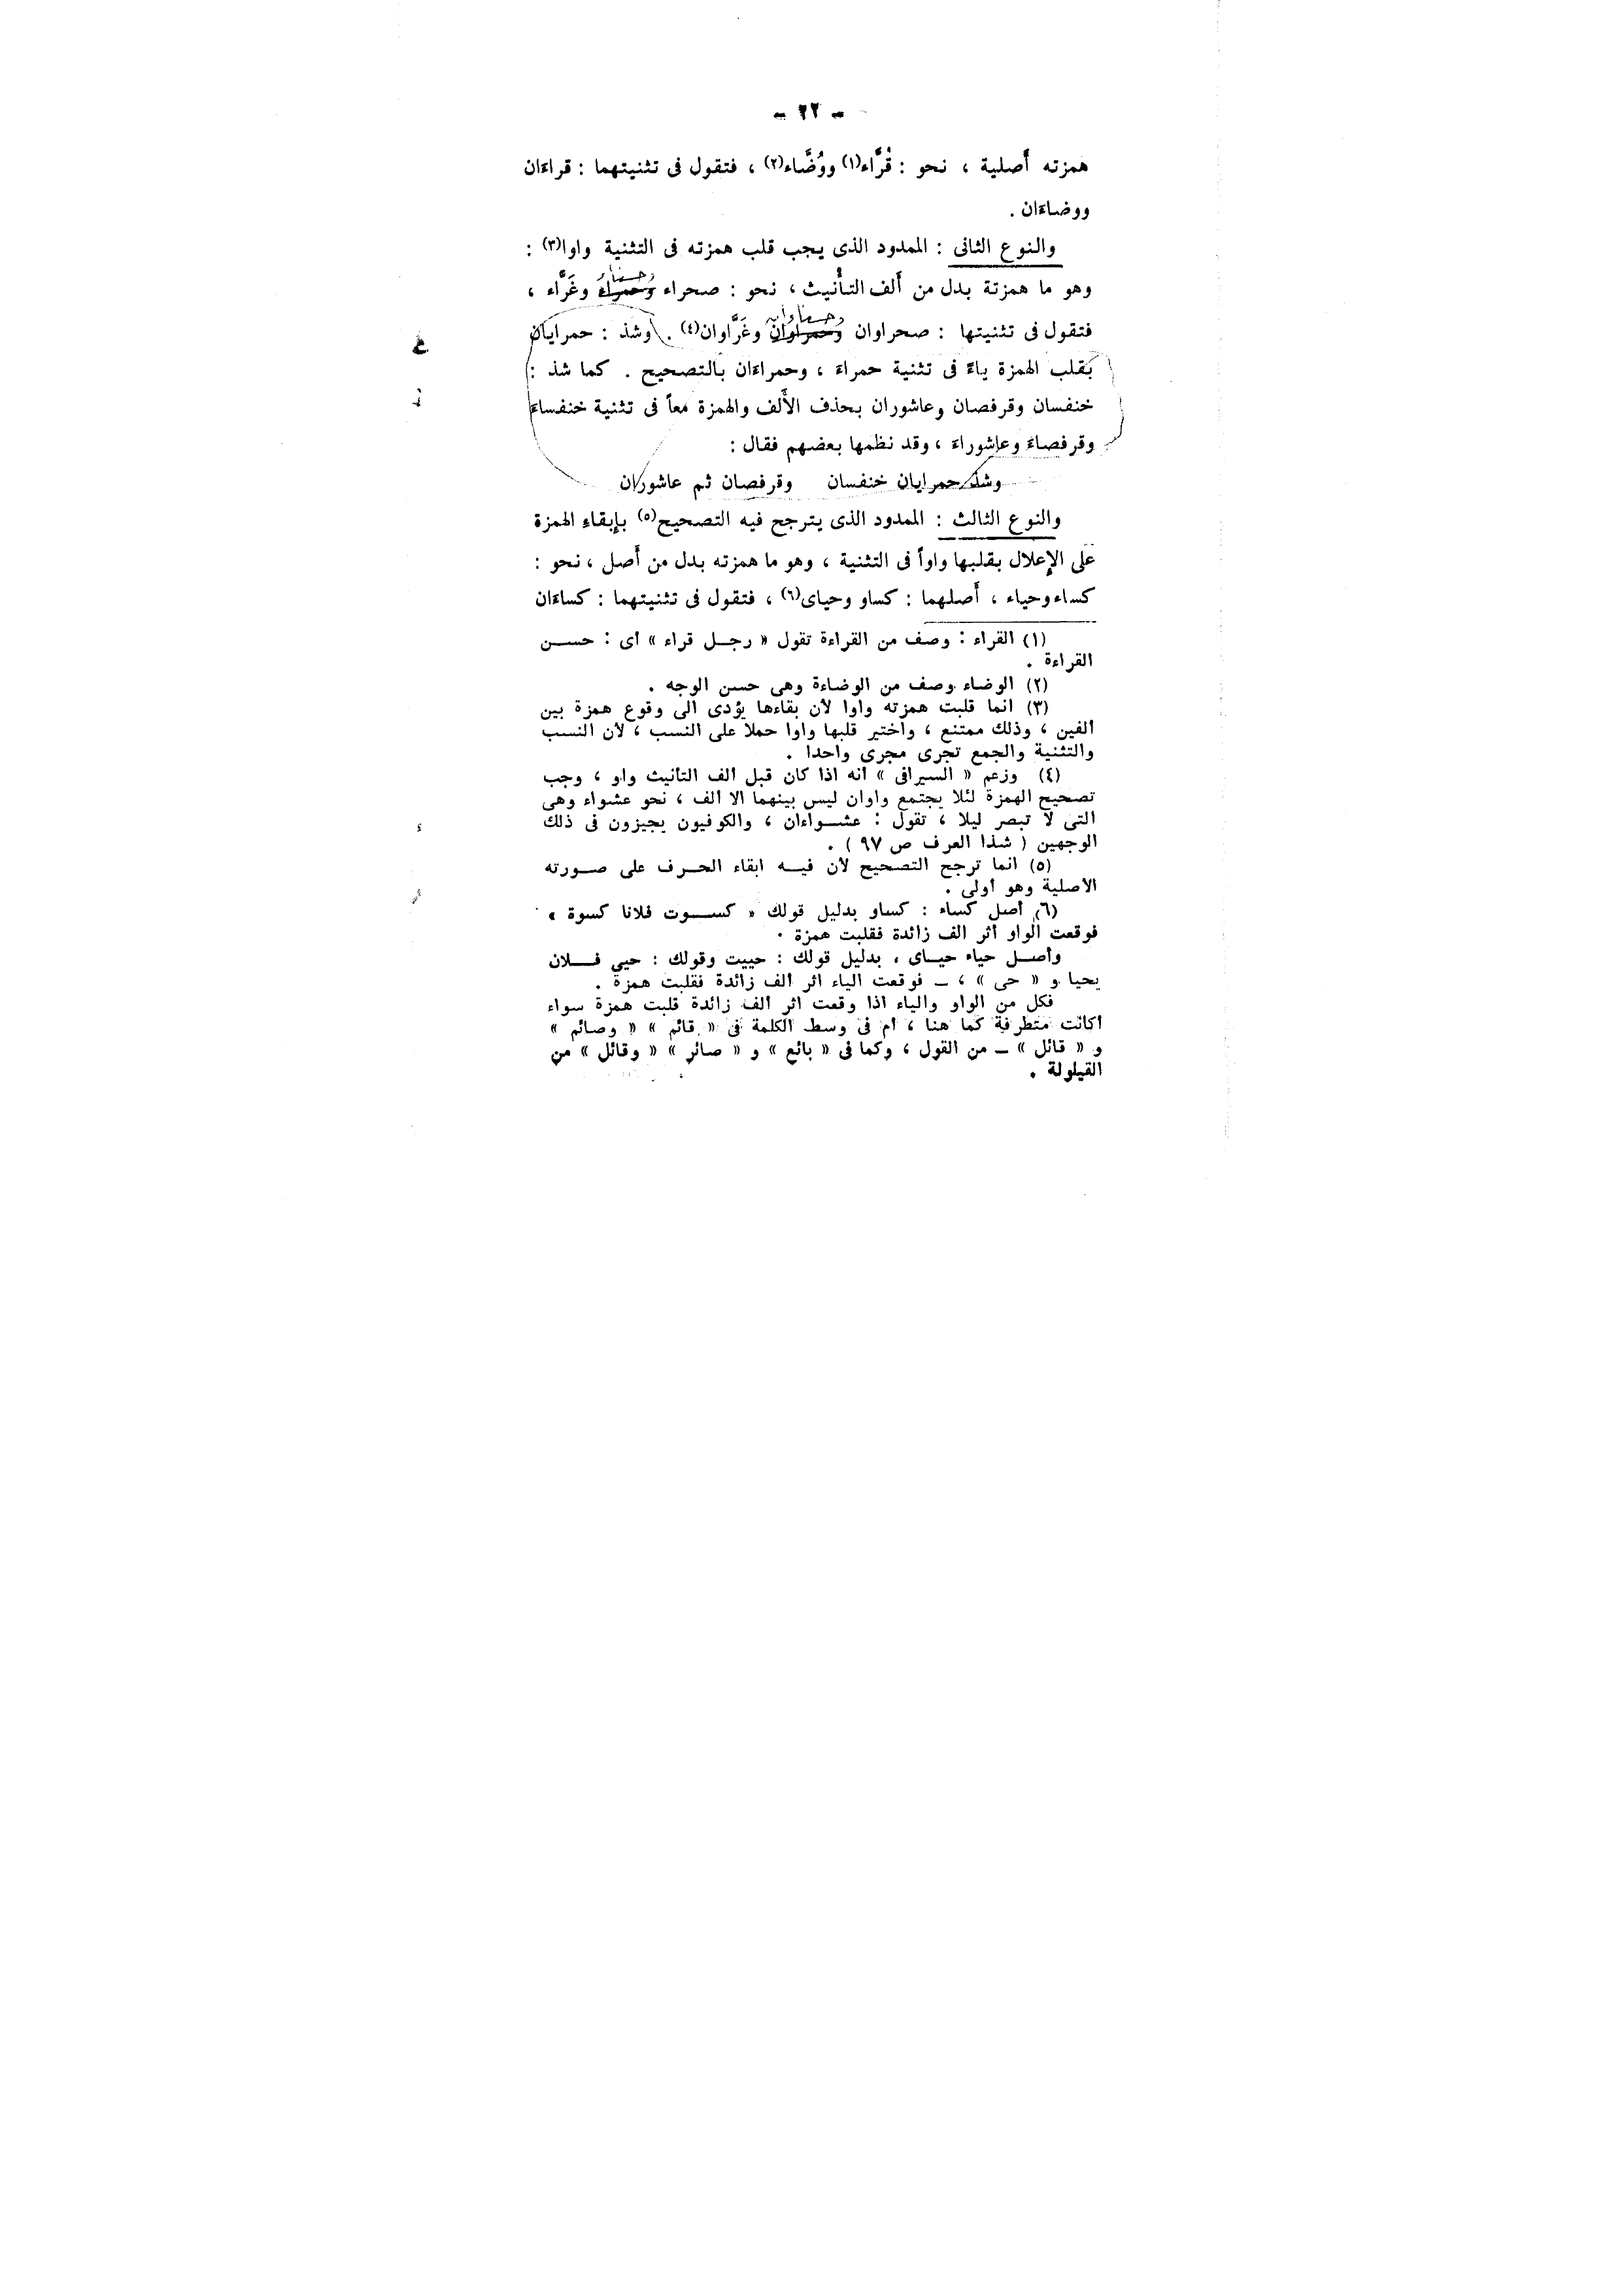 - ٢٢ -
همزته أَصلية ، نحو : قُرَّاء(١) ووُضَّاء(٢) ، فتقول فى تثنيتهما : قراءان
ووضاءان .
والنوع الثانى : الممدود الذى يجب قلب همزته فى التثنية واوا(٣) :
وهو ما همزتة بدل من أَلف التأْنيث ، نحو : صحراء وحمراء وغَرَّاء ،
فتقول فى تثنيتها : صحراوان وحمراوان وغَرَّاوان(٤) . وشذ : حمرايان
بقلب الهمزة ياءً فى تثنية حمراء ، وحمراءان بالتصحيح . كما شذ :
خنفسان وقرفصان وعاشوران بحذف الأَلف والهمزة معاً فى تثنية خنفساء
وقرفصاء وعاشوراء ، وقد نظمها بعضهم فقال :
وشذ حمرايان خنفسان وقرفصان ثم عاشوران
والنوع الثالث : الممدود الذى يترجح فيه التصحيح(٥) بإبقاءِ الهمزة
على الإِعلال بقلبها واواً فى التثنية ، وهو ما همزته بدل من أَصل ، نحو :
كساء وحياء ، أَصلهما : كساو وحياى(٦) ، فتقول فى تثنيتهما : كساءان
(١) القراء : وصف من القراءة تقول « رجل قراء » اى : حسن
القراءة .
(٢) الوضاء وصف من الوضاءة وهى حسن الوجه .
(٣) انما قلبت همزته واوا لأن بقاءها يؤدى الى وقوع همزة بين
ألفين ، وذلك ممتنع ، واختير قلبها واوا حملا على النسب ، لأن النسب
والتثنية والجمع تجرى مجرى واحدا .
(٤) وزعم « السيرافى » أنه اذا كان قبل ألف التأنيث واو ، وجب
تصحيح الهمزة لئلا يجتمع واوان ليس بينهما الا ألف ، نحو عشواء وهى
التى لا تبصر ليلا ، تقول : عشواءان ، والكوفيون يجيزون فى ذلك
الوجهين ( شذا العرف ص ٩٧ ) .
(٥) انما ترجح التصحيح لأن فيه ابقاء الحرف على صورته
الأصلية وهو أولى .
(٦) أصل كساء : كساو بدليل قولك « كسوت فلانا كسوة »
فوقعت الواو أثر ألف زائدة فقلبت همزة .
وأصل حياء حياى ، بدليل قولك : حييت وقولك : حيي فلان
يحيا و « حى » ، — فوقعت الياء اثر ألف زائدة فقلبت همزة .
فكل من الواو والياء اذا وقعت اثر ألف زائدة قلبت همزة سواء
أكانت متطرفة كما هنا ، أم فى وسط الكلمة فى « قائم » « وصائم »
و « قائل » — من القول ، وكما فى « بائع » و « صائر » « وقائل » من
القيلولة .